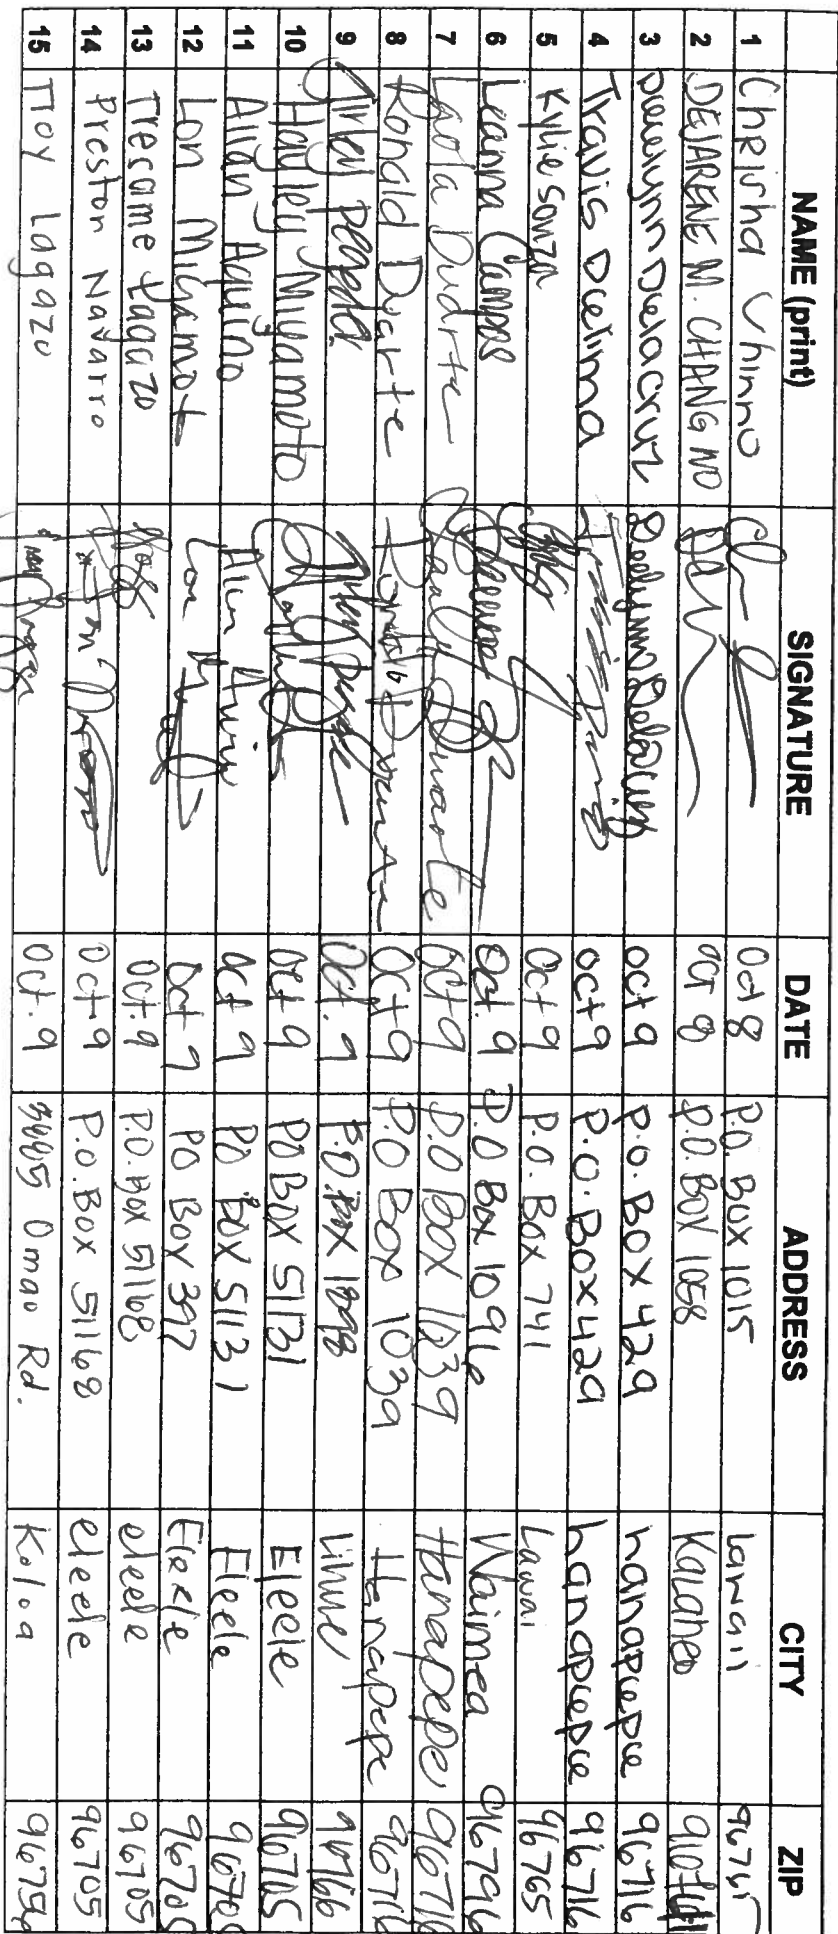 NAME (print) SIGNATURE DATE ADDRESS CITY ZIP
1 Chrisha Oct 8 P.O. BOX 1015 Lawaii
2 DEJARENE M. CHANG NO Oct 8 P.O. BOX 1058 Kalaheo
3 Deelynn Delacruz Deelynn Delacruz oct 9 P.O. BOX 429 hanapepe 96716
4 Travis Delima oct 9 P.O. BOX 429 hanapepe 96716
5 Kylie Sonza Oct 9 P.O. BOX 741 Lawai 96765
6 Leanna Campos Oct. 9 P.O Box 1096 Waimea 96796
7 Laola Duarte Duarte Oct 9 P.O BOX 1039 Hanapepe 96716
8 Ronald Duarte Ronald Duarte Oct 9 P.O Box 1039 Hanapepe 96716
9 Oct. 9 P.O. BOX Lihue 96766
10 Hayley Miyamoto Oct 9 PO BOX 51131 Eleele 96705
11 Allan Aquino Oct 9 PO BOX 51131 Eleele 96705
12 Lon Miyamot Lon Oct 9 PO BOX 397 Eleele 96705
13 Trecame Lagazo Oct. 9 P.O. BOX 51168 eleele 96705
14 Preston Navarro Oct 9 P.O. BOX 51168 eleele 96705
15 Troy Lagazo Oct. 9 Omao Rd. Koloa 96756